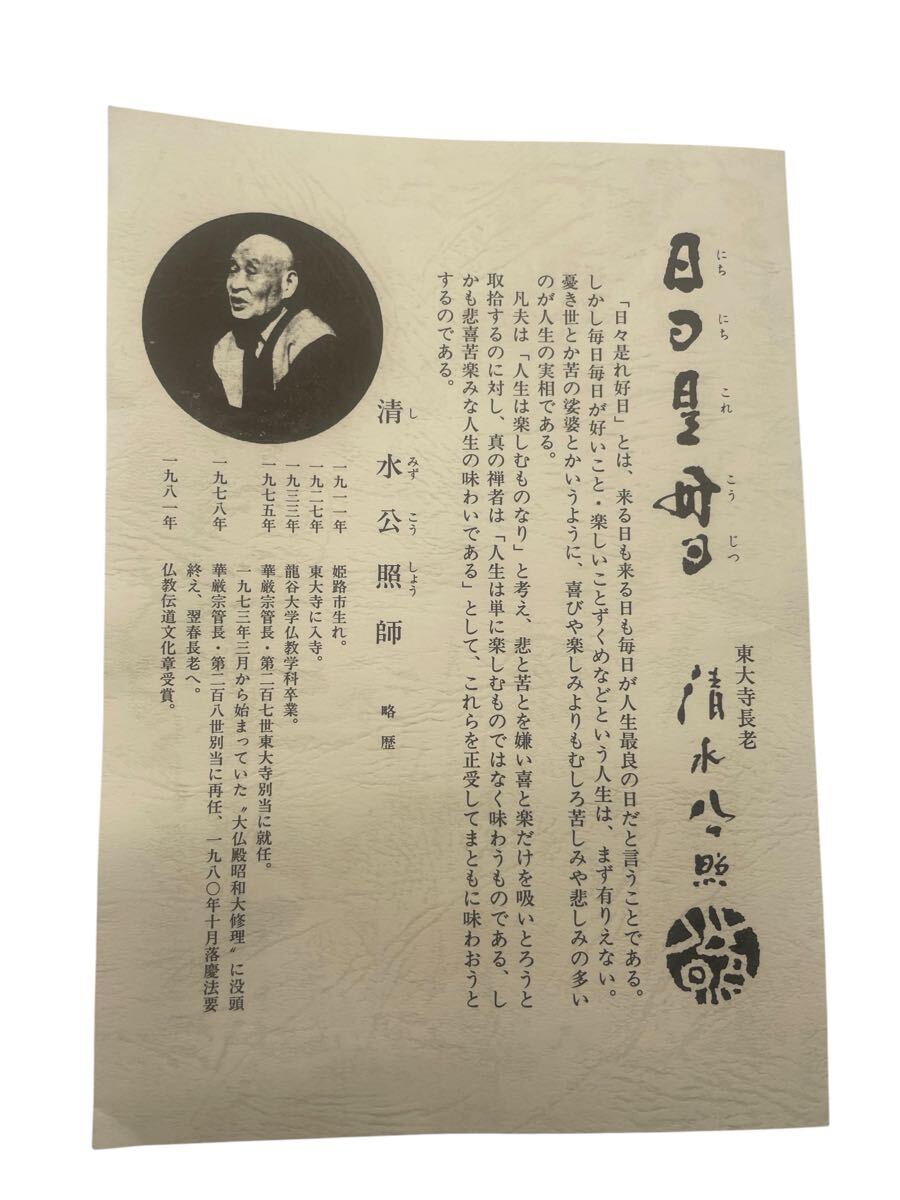 日日是好日
にち にち これ こう じつ
東大寺長老
清水公照
「日々是れ好日」とは、来る日も来る日も毎日が人生最良の日だと言うことである。
しかし毎日毎日が好いこと・楽しいことずくめなどという人生は、まず有りえない。
憂き世とか苦の娑婆とかいうように、喜びや楽しみよりもむしろ苦しみや悲しみの多い
のが人生の実相である。
凡夫は「人生は楽しむものなり」と考え、悲と苦とを嫌い喜と楽だけを吸いとろうと
取拾するのに対し、真の禅者は「人生は単に楽しむものではなく味わうものである、し
かも悲喜苦楽みな人生の味わいである」として、これらを正受してまともに味わおうと
するのである。
清水公照師 略歴
し みず こう しょう
一九一一年 姫路市生れ。
一九二七年 東大寺に入寺。
一九三三年 龍谷大学仏教学科卒業。
一九七五年 華厳宗管長・第二百七世東大寺別当に就任。
一九七三年三月から始まっていた〝大仏殿昭和大修理〟に没頭
一九七八年 華厳宗管長・第二百八世別当に再任、一九八〇年十月落慶法要
終え、翌春長老へ。
一九八一年 仏教伝道文化章受賞。